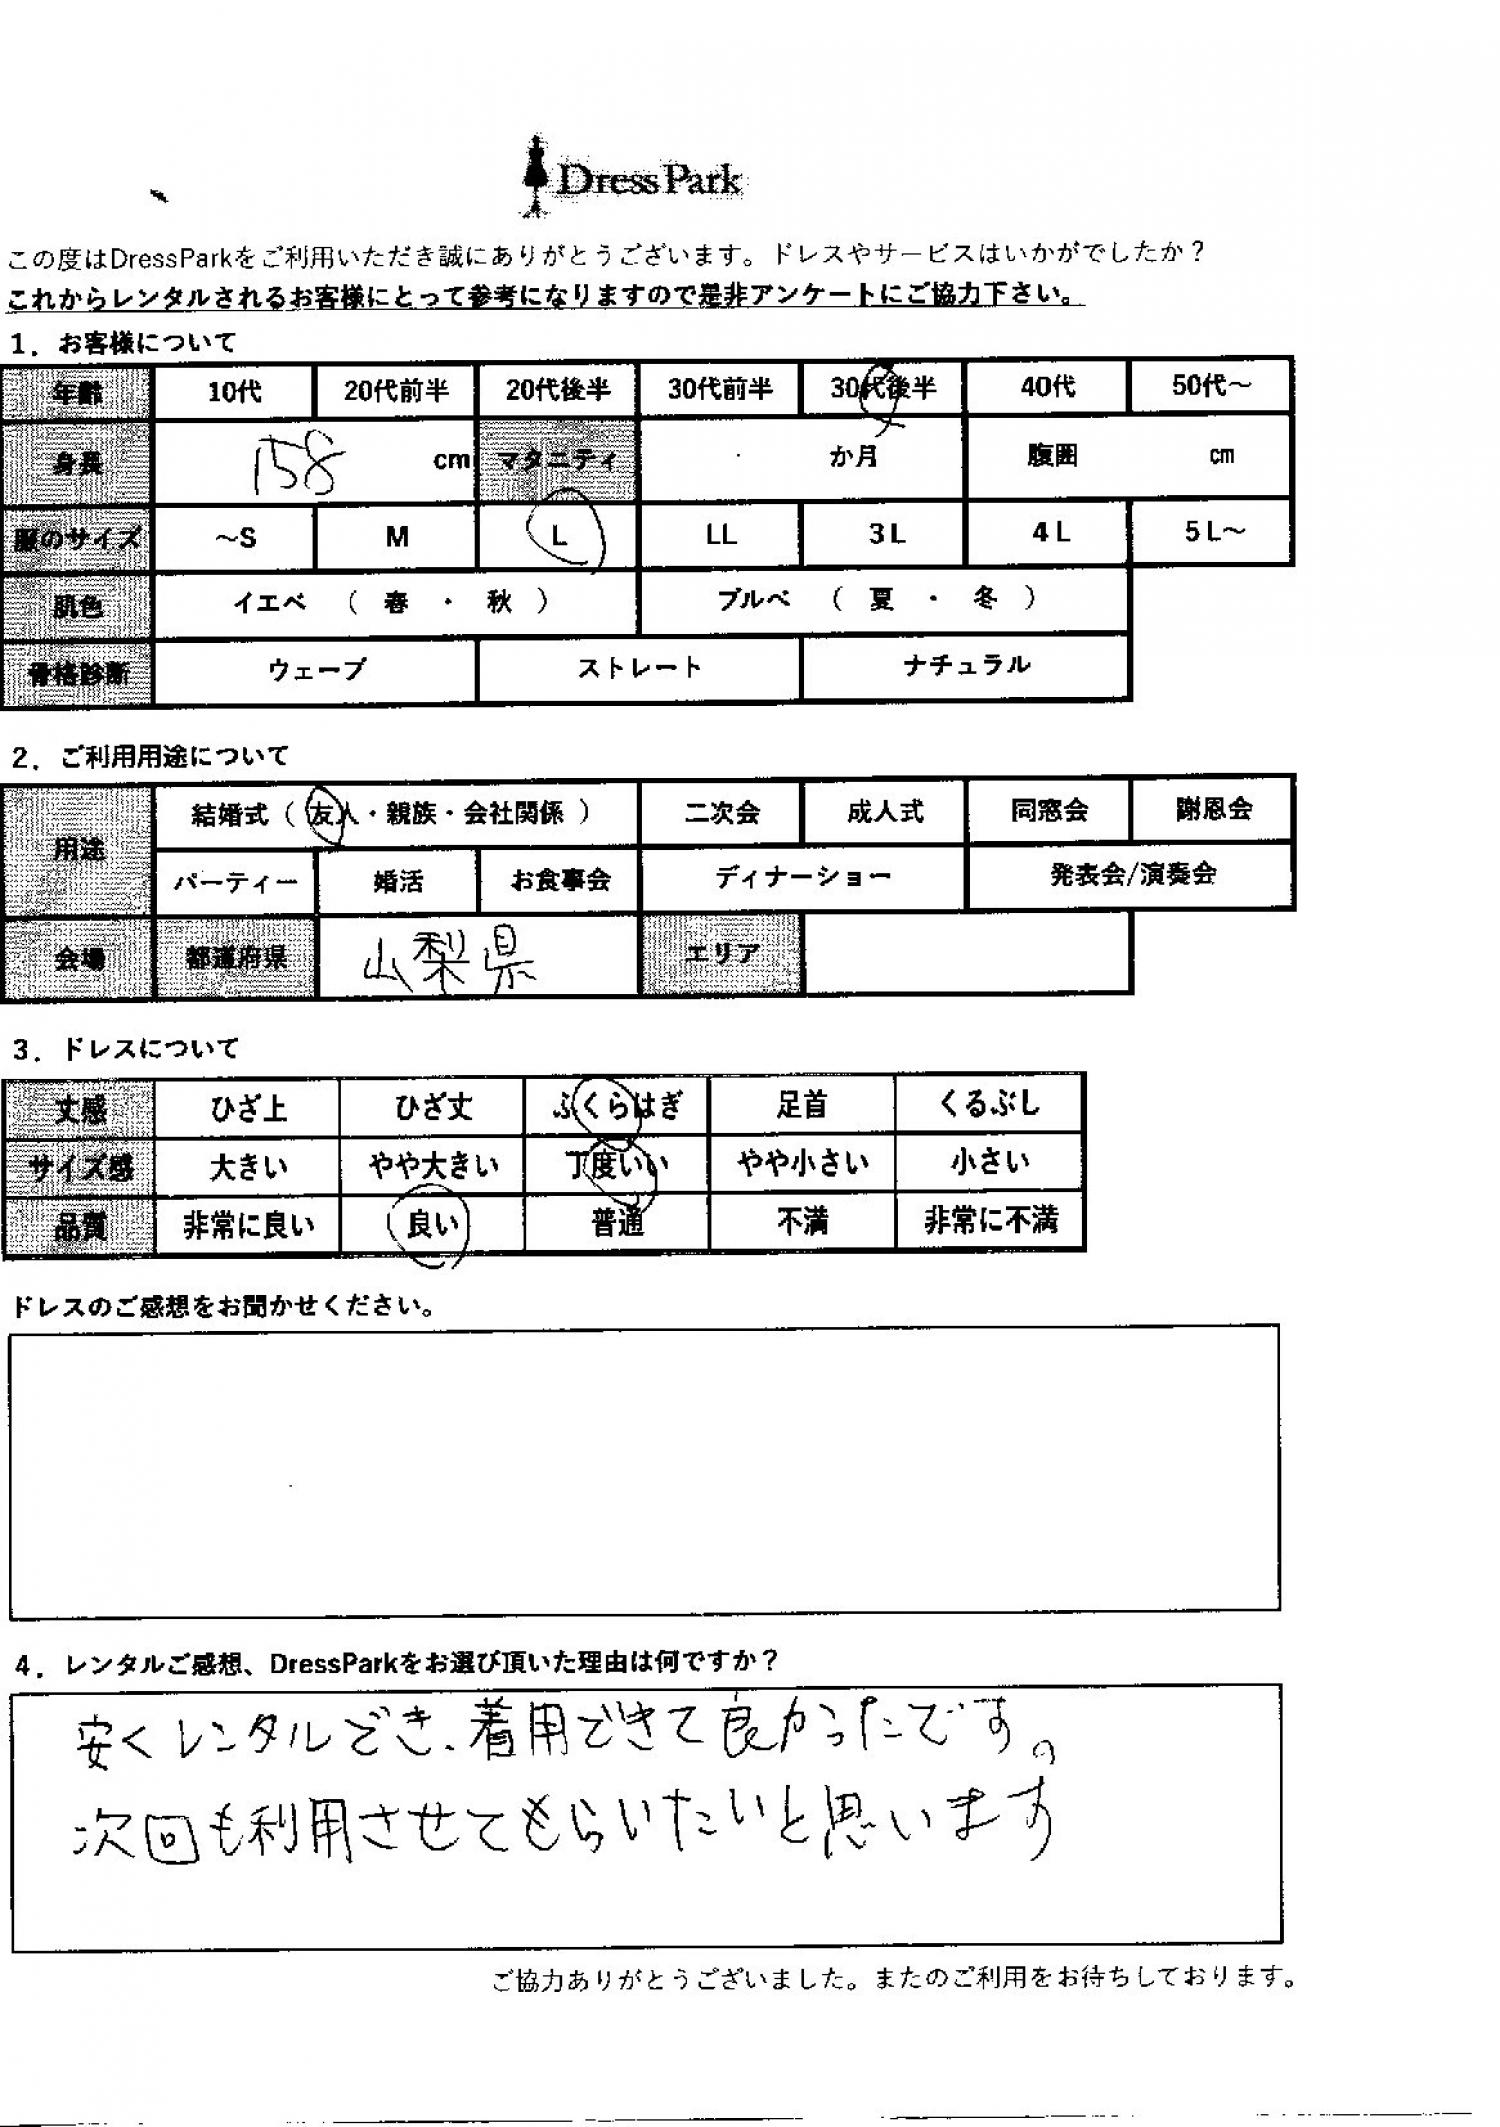 DressPark
この度はDressParkをご利用いただき誠にありがとうございます。ドレスやサービスはいかがでしたか？
これからレンタルされるお客様にとって参考になりますので是非アンケートにご協力下さい。
1．お客様について
年齢 10代 20代前半 20代後半 30代前半 30代後半 40代 50代～
身長 158 cm マタニティ か月 腹囲 cm
服のサイズ ～S M L LL 3L 4L 5L～
肌色 イエベ （ 春 ・ 秋 ） ブルベ （ 夏 ・ 冬 ）
骨格診断 ウェーブ ストレート ナチュラル
2．ご利用用途について
用途 結婚式（ 友人・親族・会社関係 ） 二次会 成人式 同窓会 謝恩会
パーティー 婚活 お食事会 ディナーショー 発表会/演奏会
会場 都道府県 山梨県 エリア
3．ドレスについて
丈感 ひざ上 ひざ丈 ふくらはぎ 足首 くるぶし
サイズ感 大きい やや大きい 丁度いい やや小さい 小さい
品質 非常に良い 良い 普通 不満 非常に不満
ドレスのご感想をお聞かせください。
4．レンタルご感想、DressParkをお選び頂いた理由は何ですか？
安くレンタルでき、着用できて良かったです。
次回も利用させてもらいたいと思います
ご協力ありがとうございました。またのご利用をお待ちしております。